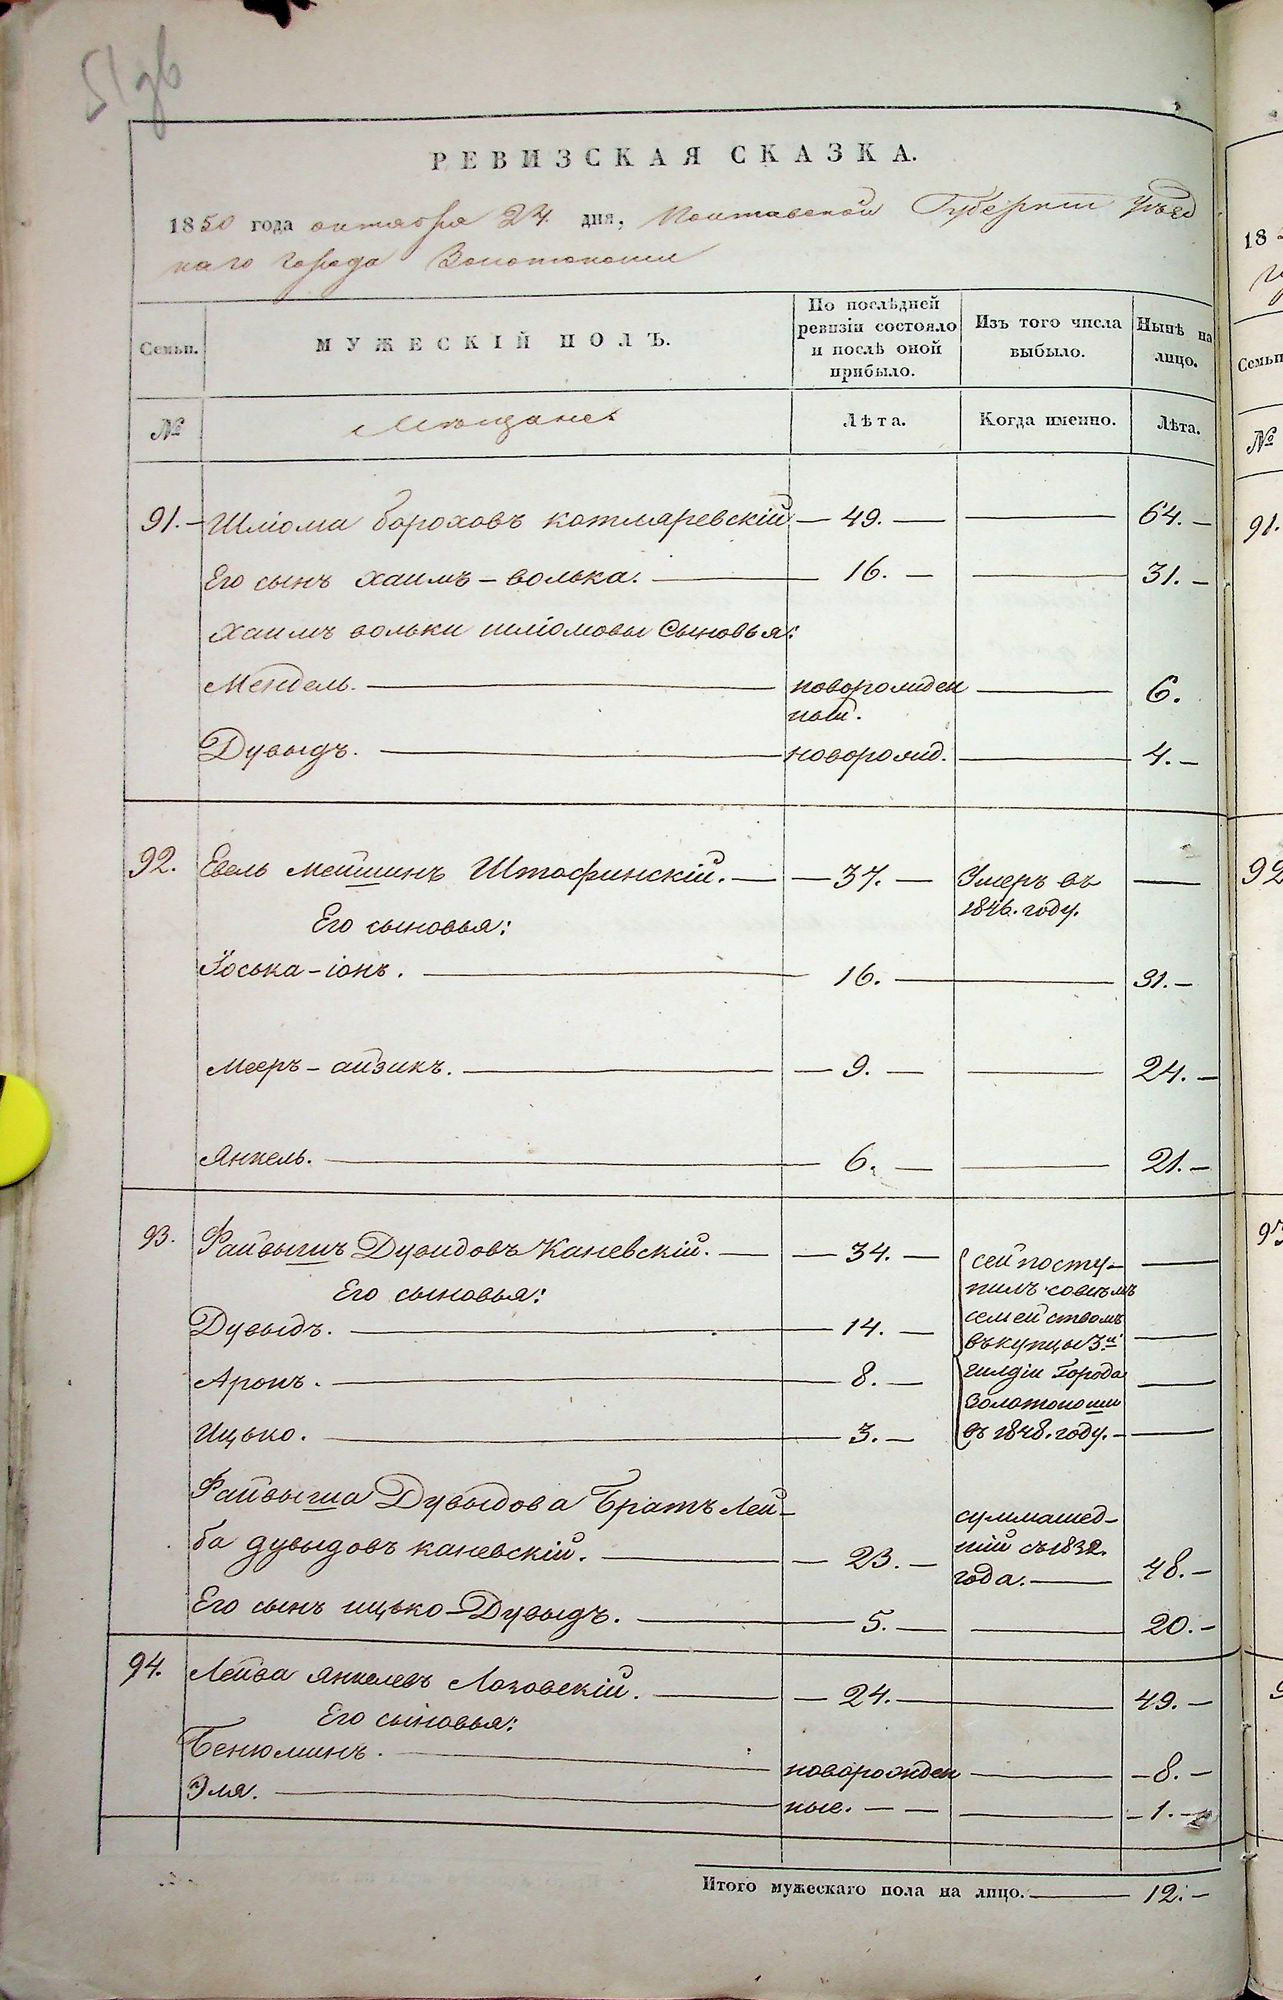 51 об
РЕВИЗСКАЯ СКАЗКА.
1850 года октября 24 дня, Полтавской Губернии Уѣзд
наго города Золотоноши
Семьи.
МУЖЕСКІЙ ПОЛЪ.
По послѣдней
ревизіи состояло
и послѣ оной
прибыло.
Изъ того числа
выбыло.
Нынѣ на
лицо.
№
Мѣщане
Лѣта.
Когда именно.
Лѣта.
91. Шліома Бороховъ Котляревскій — 49. — — 64. —
Его сынъ Хаимъ-Волька. — 16. — — 31. —
Хаимъ Вольки Шліомовы Сыновья:
Мендель. — новорожден — 6.
ный.
Дувыдъ. — новорожд. — 4. —
92. Евель Мейшинъ Штофинскій. — 37. — Умеръ въ —
1846. году.
Его сыновья:
Іоська-іонъ. — 16. — — 31. —
Мееръ-айзикъ. — 9. — — 24. —
Янкель. — 6. — — 21. —
93. Файвишъ Дувидовъ Каневскій. — 34. — сей посту- —
Его сыновья: пилъ совсѣмъ
семействомъ
Дувыдъ. — 14. — въ купцы 3й —
Аронъ. — 8. — гилдіи города —
Золотоноши
Ицько. — 3. — въ 1848. году. —
Файвыша Дувыдова Братъ Лей-
ба дувыдовъ каневскій. — 23. — суммашед-
ній съ 1832.
года. — 48. —
Его сынъ ицько-Дувыдъ. — 5. — — 20. —
94. Лейба Янкелевъ Лозовскій. — 24. — — 49. —
Его сыновья:
Бенюминъ. — новорожден — 8. —
Эля. — ные. — — 1. —
Итого мужескаго пола на лицо. — 12. —
18
Семьи
№
91.
92
93